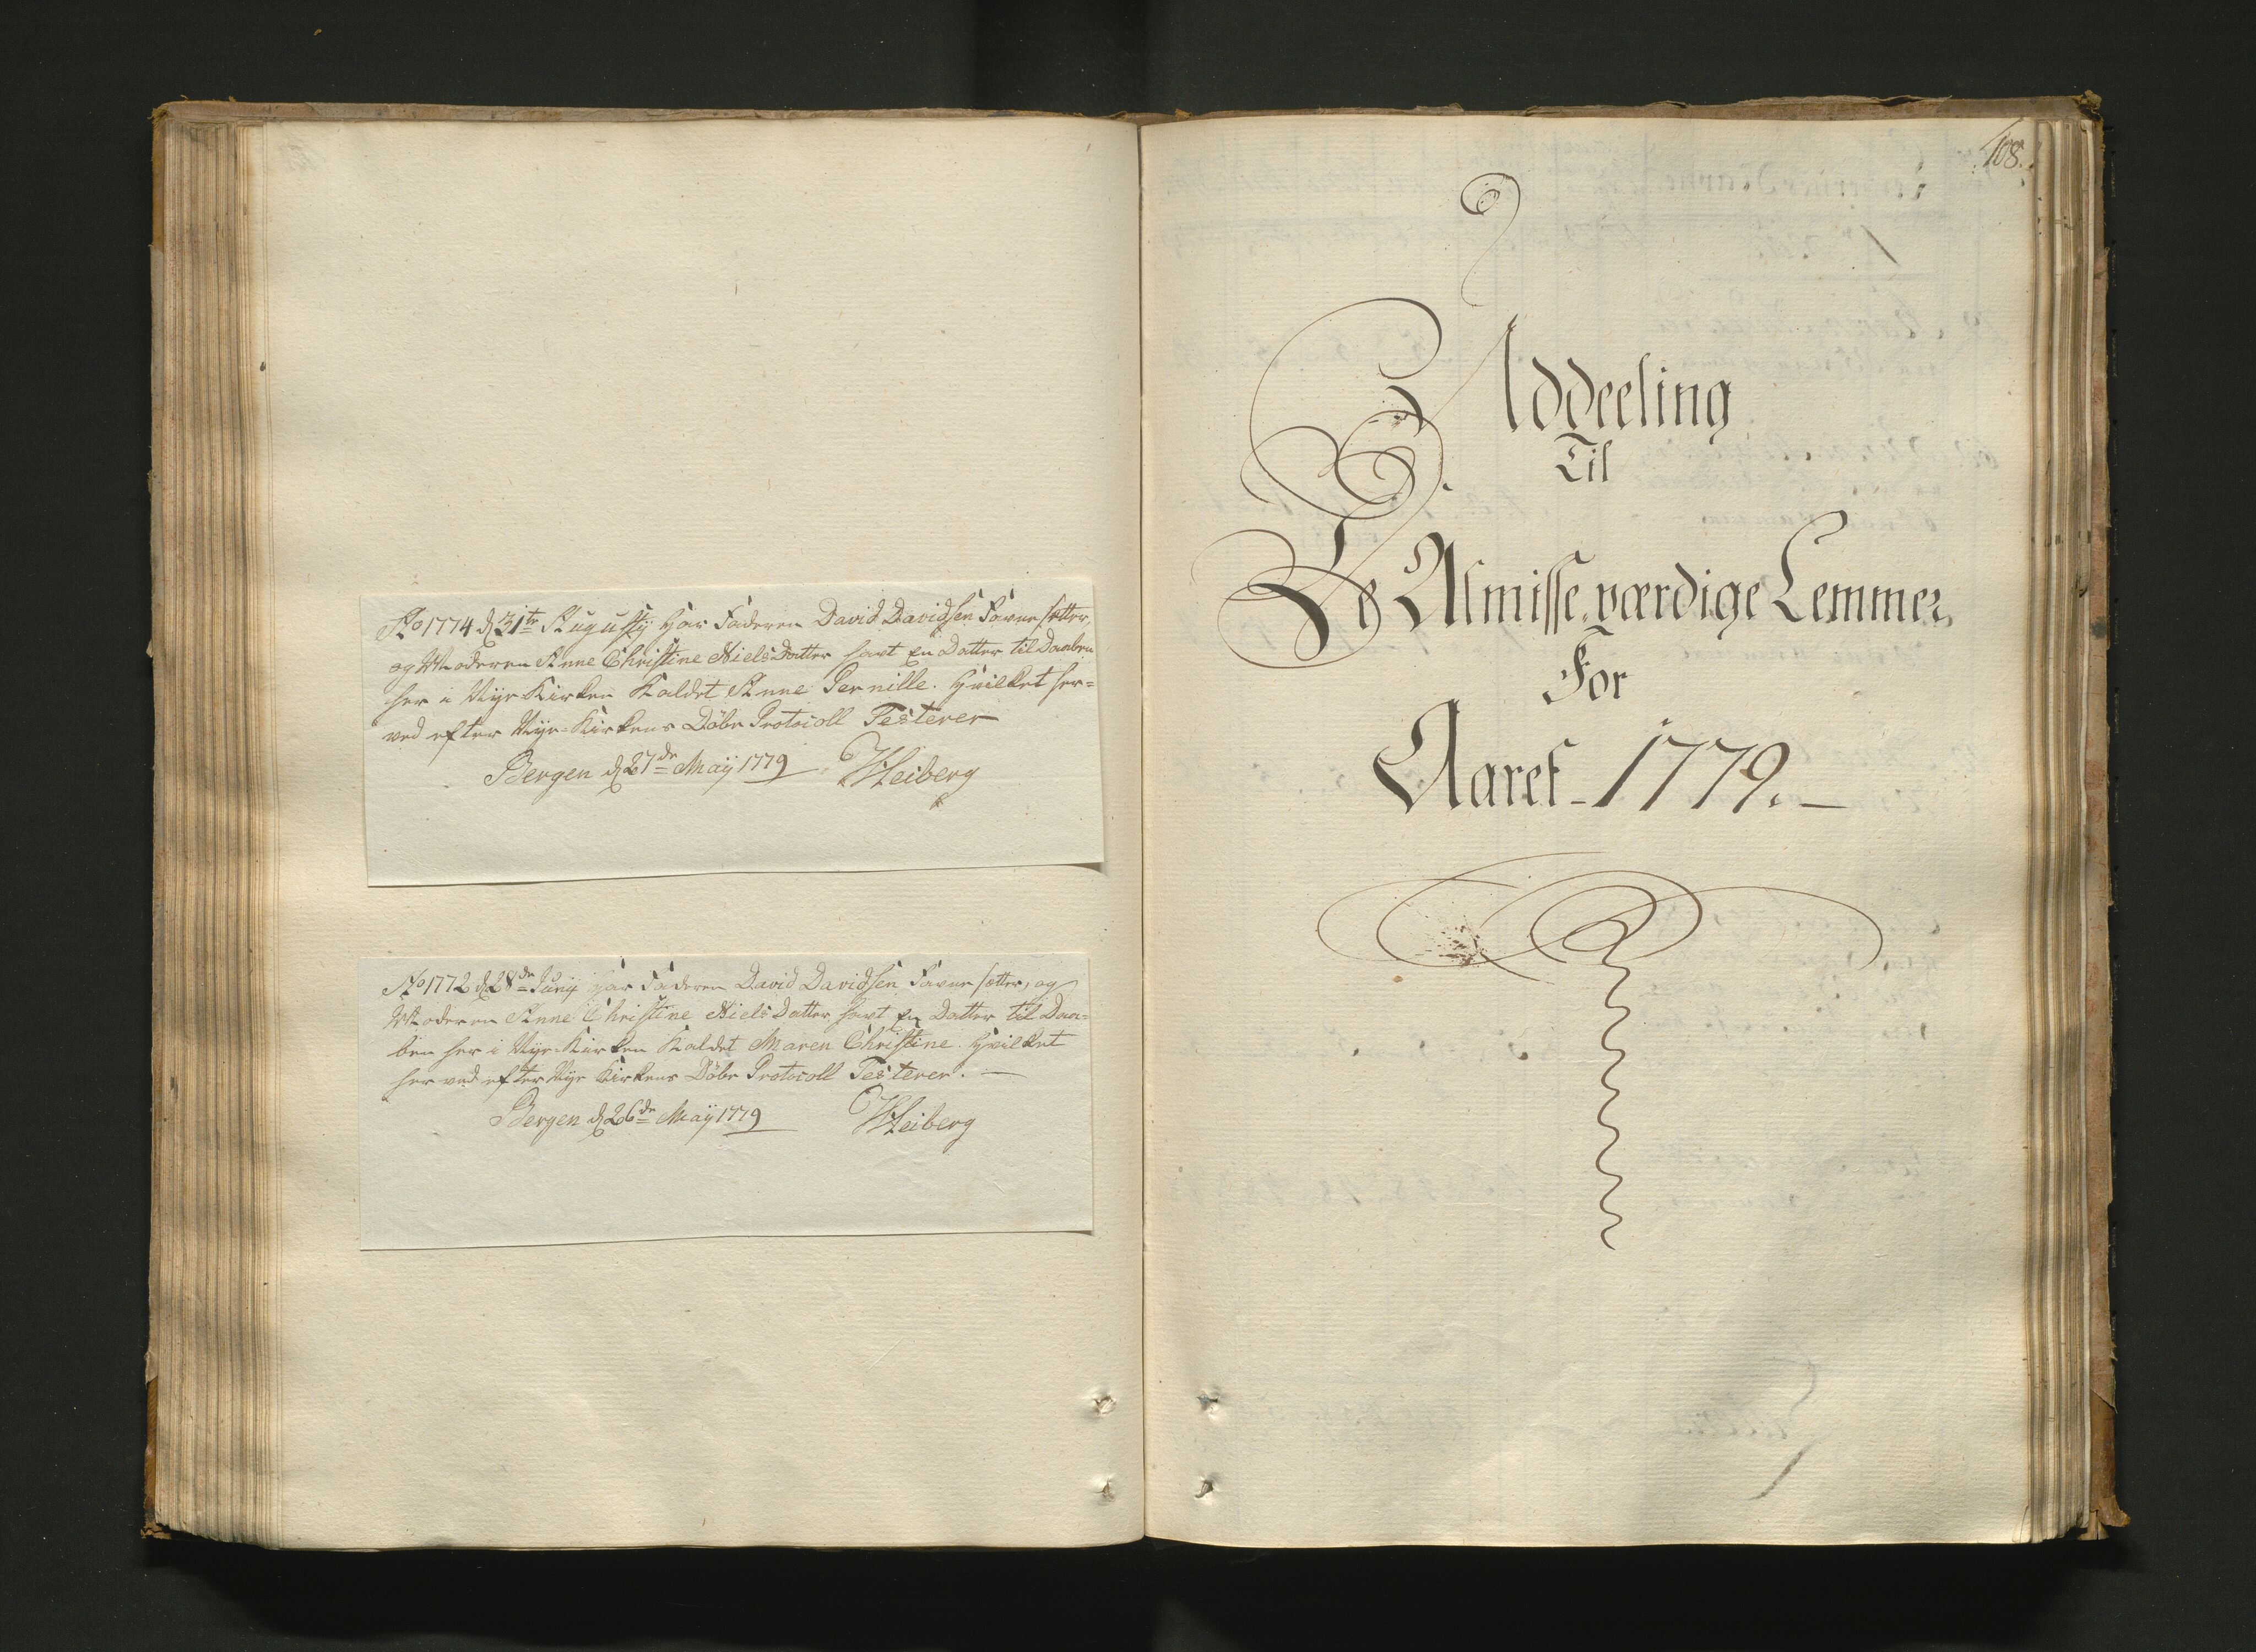 Ao 1774 d 31te Augusty har Faderen David Davidsen Favne sætter,
og Moderen Anne Christine Niels Datter havt En Datter til Daaben
her i Nye Kirken Kaldet Anne Pernille. Hvilket her=
ved efter Nye-Kirkens Döbe Protocoll Testerer
Bergen d 27de Maÿ 1779 Heiberg
Ao 1772 d 28de Juny har Faderen David Davidsen Favne sætter, og
Moderen Anne Christine Niels Datter havt En Datter til Daa=
ben her i Nye-Kirken Kaldet Maren Christine. Hvilket
her ved efter Nye Kirkens Döbe Protocoll Testerer. —
Bergen d 26de Maÿ 1779 Heiberg
108.
Uddeeling
Til
De Almisse værdige Lemmer,
For
Aaret 1779. —